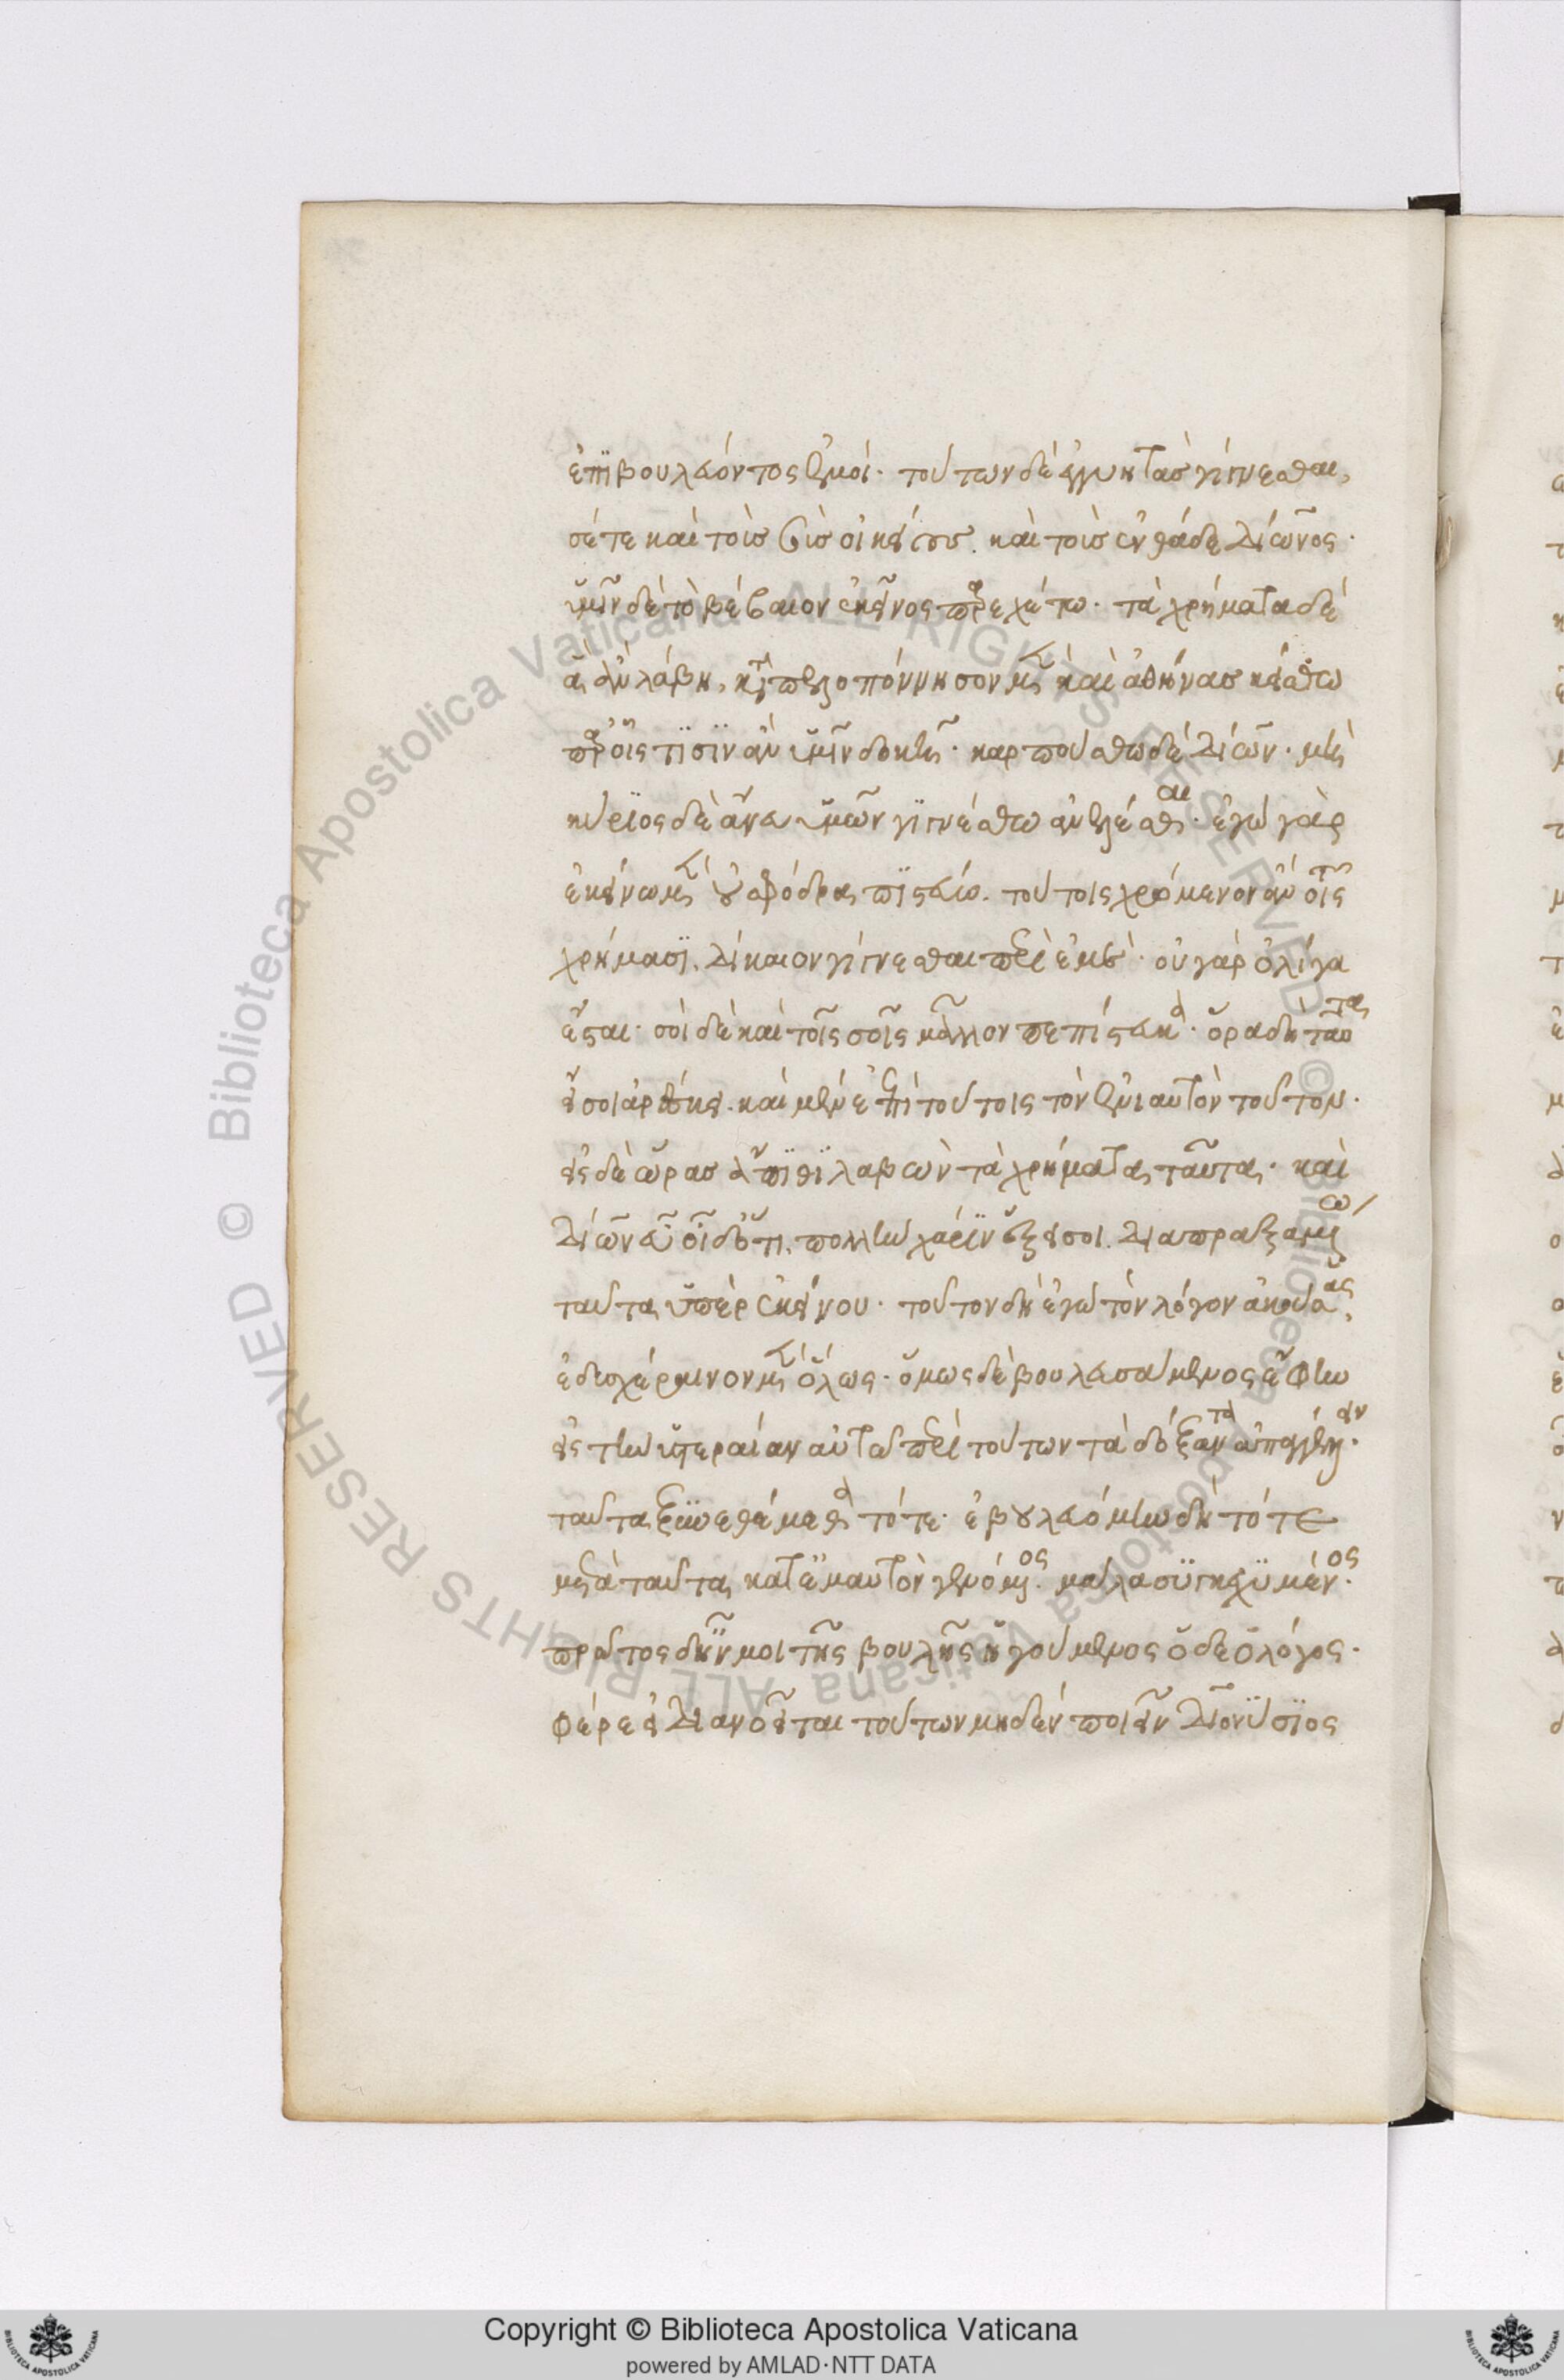 ἐπιβουλεύοντος ἐμοί· τούτων δὲ ἐγγυητὰς γίγνεσθαι,
σέ τε καὶ τοὺς σοὺς οἰκείους. καὶ τοὺς ἐνθάδε Δίωνος·
ὑμῖν δὲ τὸ βέβαιον ἐκεῖνος παρεχέτω· τὰ χρήματα δὲ
ἃ ἂν λάβη, κατὰ πελοπόννησον μὲν καὶ ἀθήνας κείσθω
παρ' οἷς τισὶν ἂν ὑμῖν δοκῇ· καρπούσθω δὲ Δίων· μὴ
κύριος δὲ ἄνευ ὑμῶν γιγνέσθω ἀνελέσθαι· ἐγὼ γὰρ
ἐκείνω μὲν οὐ σφόδρα πιστεύω. τούτοις χρώμενον ἂν τοῖς
χρήμασι. δίκαιον γίγνεσθαι περὶ ἐμέ· οὐ γὰρ ὀλίγα
ἔσται· σοὶ δὲ καὶ τοῖς σοῖς μᾶλλον πεπίστευκα· ὅρα δὴ ταῦτα
εἴ σοι ἀρέσκει. καὶ μένε ἐπὶ τούτοις τὸν ἐνιαυτὸν τοῦτον·
εἰς δὲ ὥρας ἄπιθι λαβὼν τὰ χρήματα ταῦτα· καὶ
Δίων εὖ οἶδ' ὅτι. πολλὴν χάριν ἕξει σοι. διαπραξαμένω
ταῦτα ὑπὲρ ἐκείνου· τοῦτον δὴ ἐγὼ τὸν λόγον ἀκούσας,
ἐδυσχέραινον μὲν ὅλως· ὅμως δὲ βουλευσάμενος ἔφην
εἰς τὴν ὑστεραίαν αὐτῶ περὶ τούτων τὰ δόξαντα ἀπαγγέλλειν·
ταῦτα ξυνεθέμεθα τότε· ἐβουλευόμην δὴ τότε
μετὰ ταῦτα κατ' ἐμαυτὸν γενόμενος. μάλα συγκεχυμένος·
πρῶτος δ' ἦν μοι τῆς βουλῆς ἡγούμενος ὅδε ὁ λόγος·
φέρε εἰ διανοεῖται τούτων μηδὲν ποιεῖν Διονύσιος
Copyright © Biblioteca Apostolica Vaticana
powered by AMLAD·NTT DATA